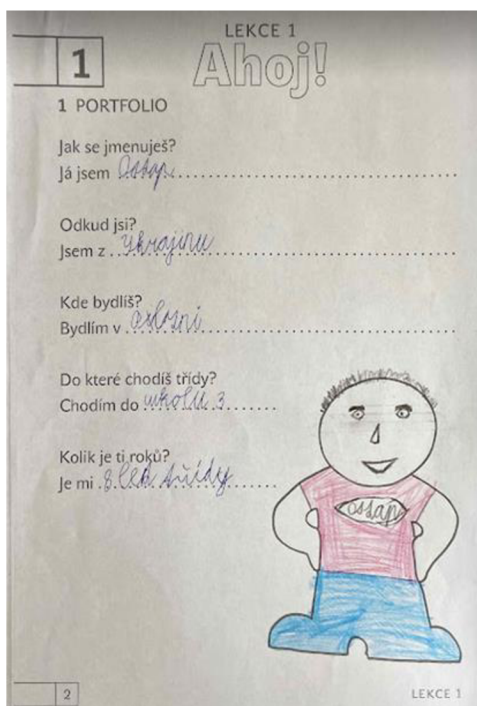 LEKCE 1
1
Ahoj!
1 PORTFOLIO
Jak se jmenuješ?
Já jsem Ostap
Odkud jsi?
Jsem z Ukrajinu
Kde bydlíš?
Bydlím v
Do které chodíš třídy?
Chodím do 3
Kolik je ti roků?
Je mi 8 let třídy
Ostap
2
LEKCE 1